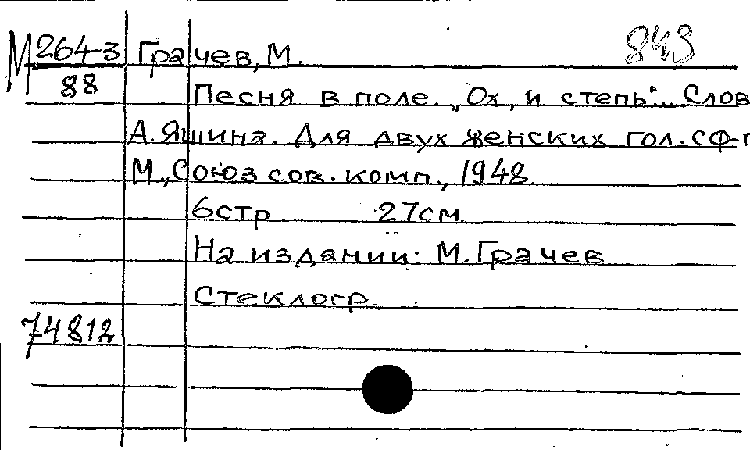 М 264-3 Грачев, М. 843
88
Песня в поле. „Ох, и степь“. Слов
А. Яшина. Для двух женских гол. с ф-п
М., Союз сов. комп., 1948
6стр 27см
На издании: М. Грачев
Стеклогр.
74812